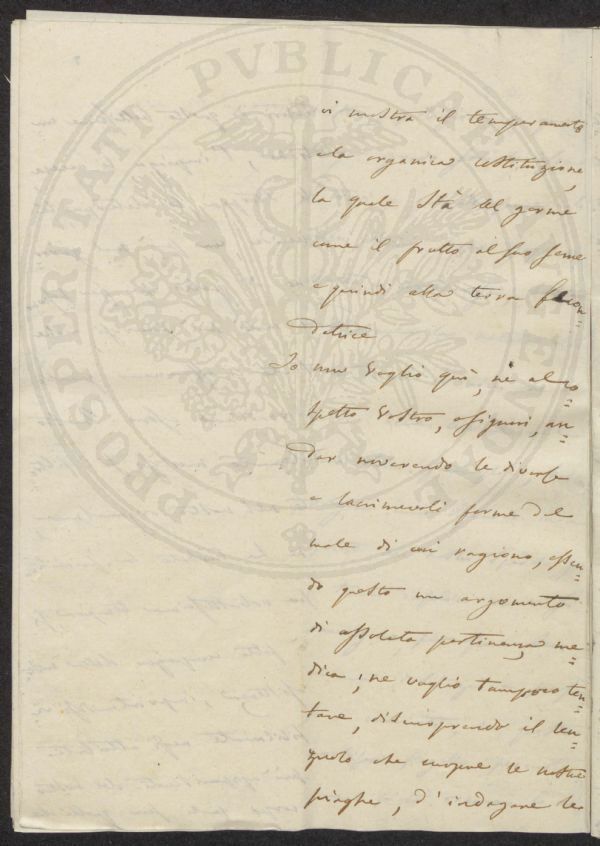 PROSPERITATI PVBLICAE AVGENDAE
ci mostra il temperamento
e la organica costituzione,
la quale stà al germe
come il frutto al suo seme
e quindi alla terra fecon=
datrice
Io non voglio quì, nè al co=
spetto vostro, o signori, an=
dar noverando le diverse
e lacrimevoli forme del
male di cui ragiono, essen=
do questo un argomento
di assoluta pertinenza me=
dica; ne voglio tampoco ten=
tare, discuoprendo il len=
zuolo che cuopre le nostre
piaghe, d'indagare le